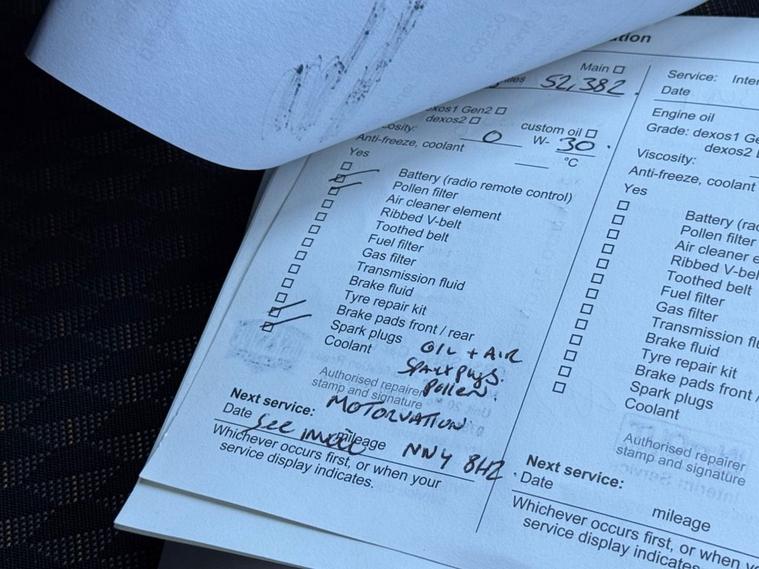 Main
52,382
dexos1 Gen2
dexos2
custom oil
0 W- 30
Anti-freeze, coolant °C
Yes
Battery (radio remote control)
Pollen filter
Air cleaner element
Ribbed V-belt
Toothed belt
Fuel filter
Gas filter
Transmission fluid
Brake fluid
Tyre repair kit
Brake pads front / rear
Spark plugs
Coolant
OIL + AIR
Spark plugs.
Pollen
Authorised repairer
stamp and signature
MOTORVATION
Next service:
Date See invoice mileage
NN4 8HZ
Whichever occurs first, or when your
service display indicates.
Service:
Date
Engine oil
Grade: dexos1
dexos2
Viscosity:
Anti-freeze, coolant
Yes
Battery
Pollen filter
Air cleaner
Ribbed V-belt
Toothed belt
Fuel filter
Gas filter
Transmission
Brake fluid
Tyre repair kit
Brake pads front
Spark plugs
Coolant
Authorised repairer
stamp and signature
Next service:
Date
mileage
Whichever occurs first,
service display indicates